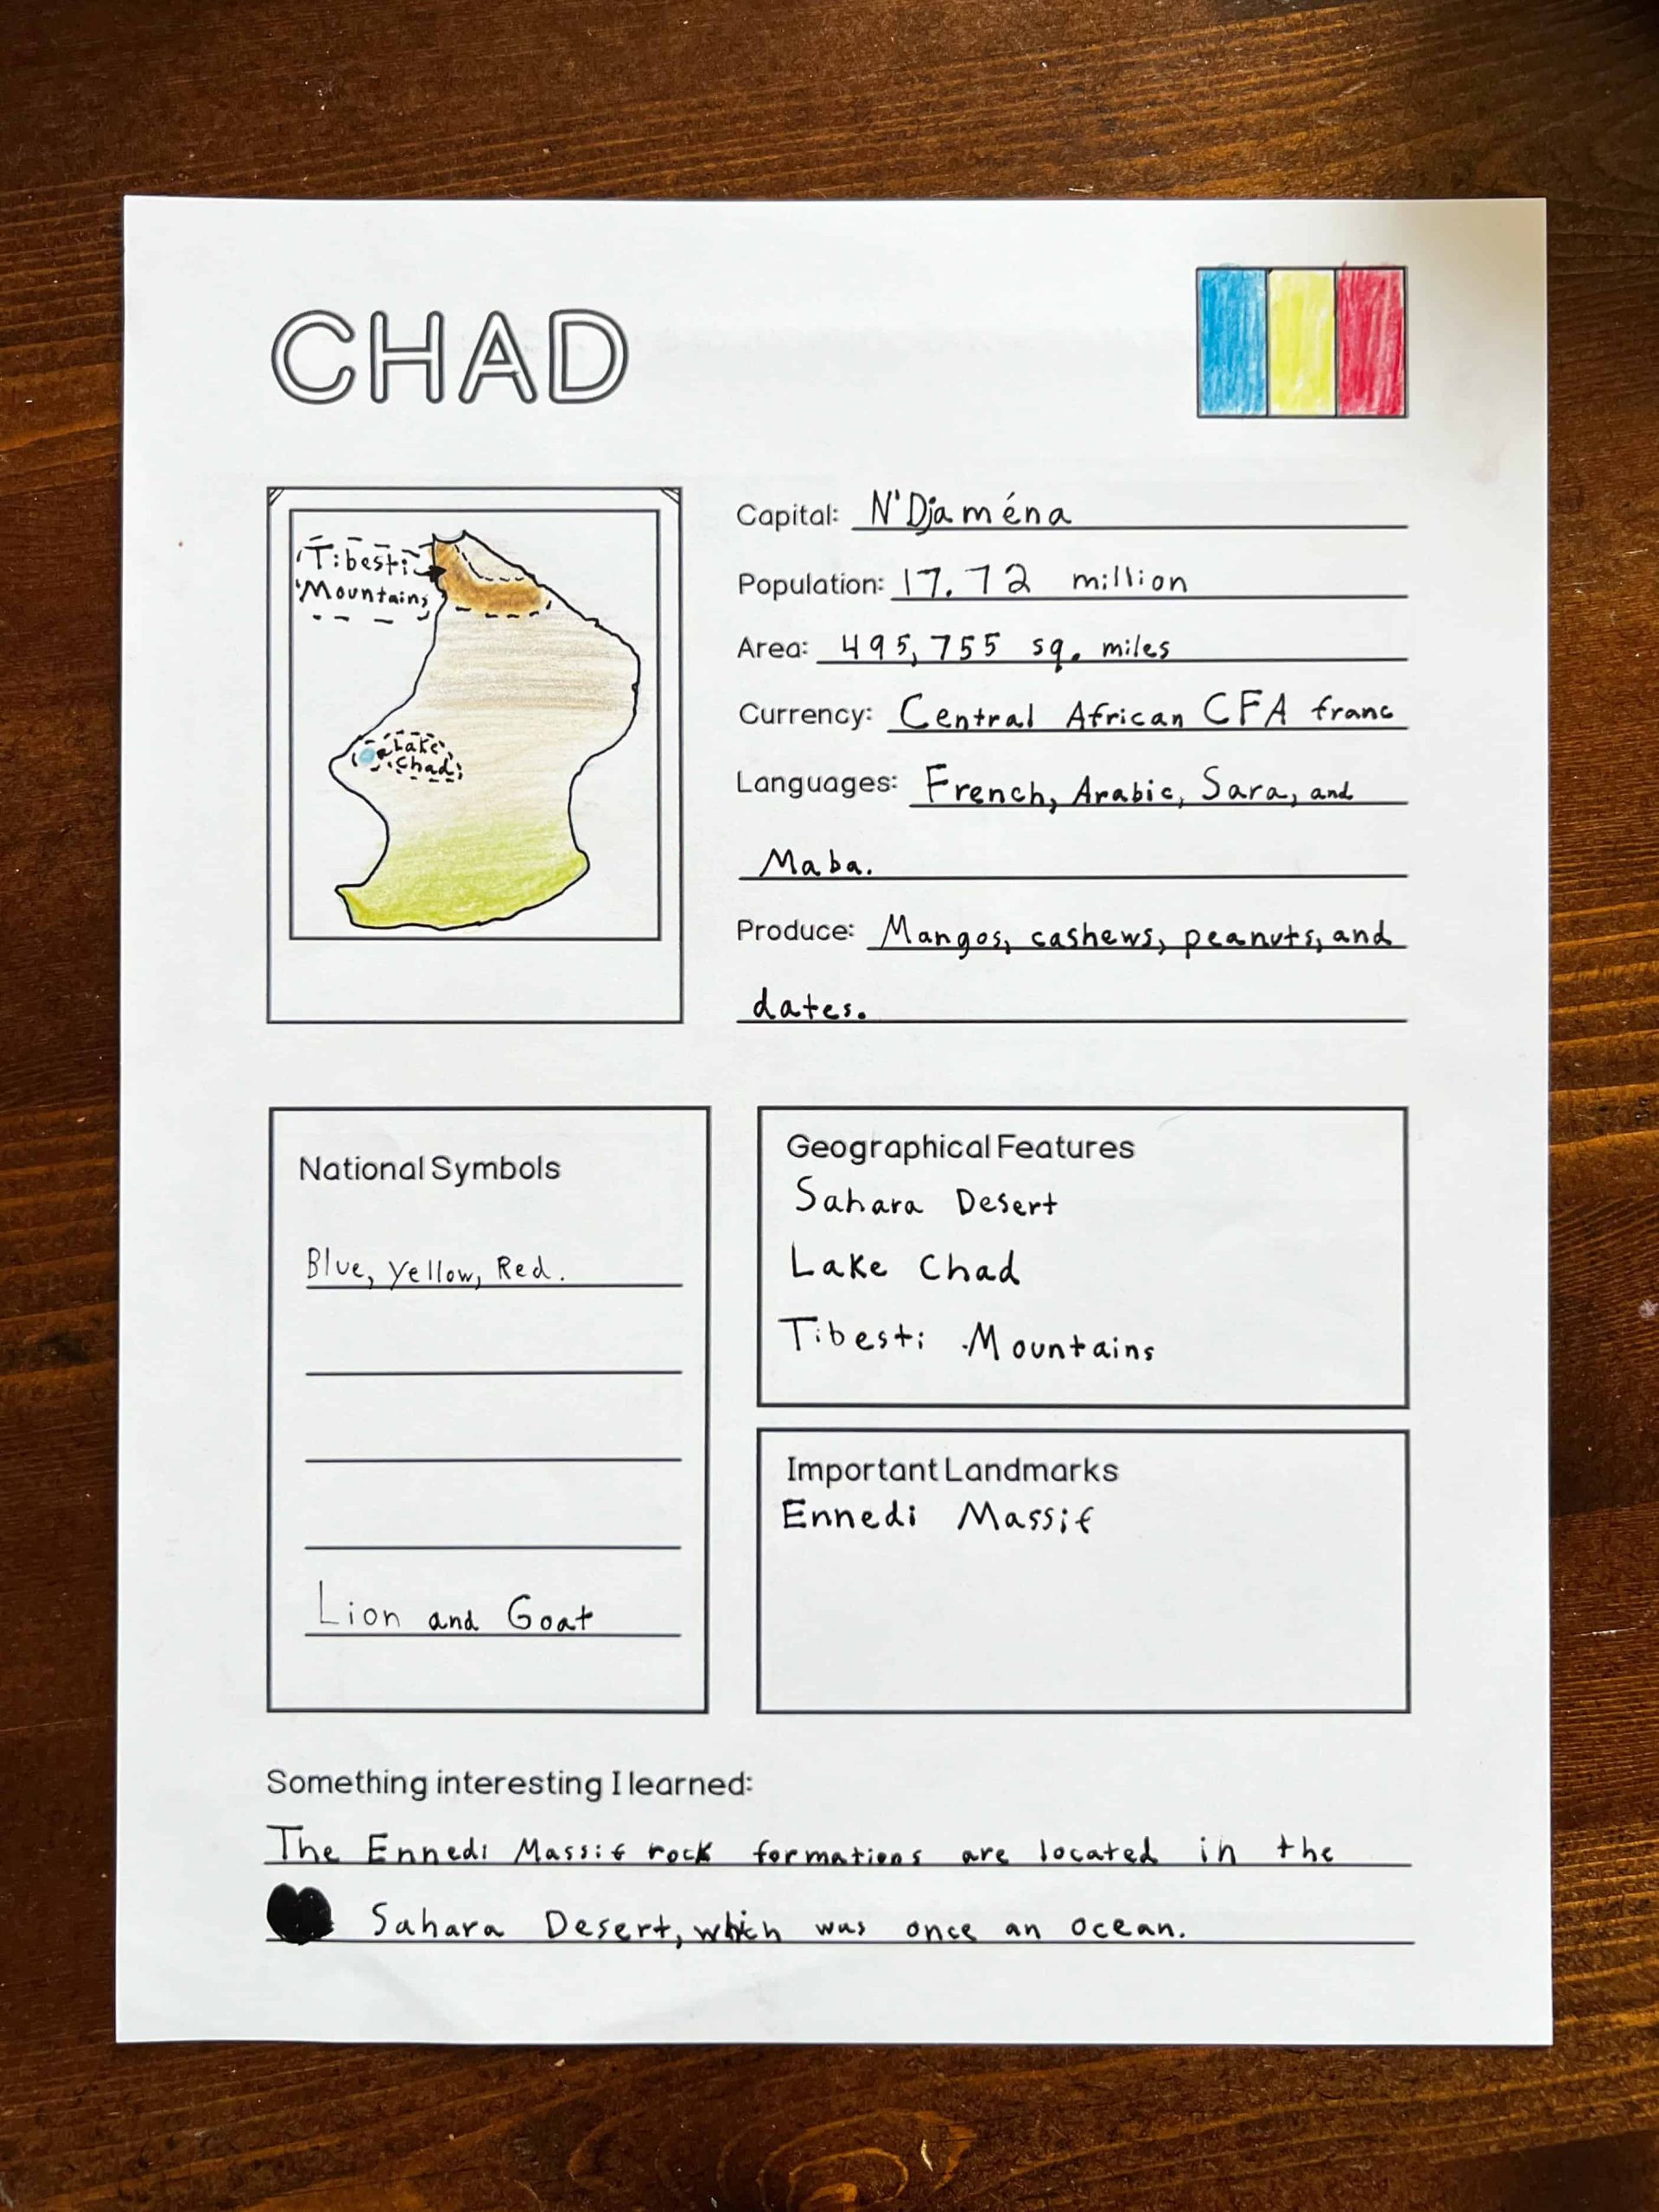 CHAD
Tibesti
Mountains
Lake
Chad
Capital: N'Djaména
Population: 17.72 million
Area: 495,755 sq. miles
Currency: Central African CFA franc
Languages: French, Arabic, Sara, and
Maba.
Produce: Mangos, cashews, peanuts, and
dates.
National Symbols
Blue, yellow, Red.
Lion and Goat
Geographical Features
Sahara Desert
Lake Chad
Tibesti Mountains
Important Landmarks
Ennedi Massif
Something interesting I learned:
The Ennedi Massif rock formations are located in the
Sahara Desert, which was once an ocean.